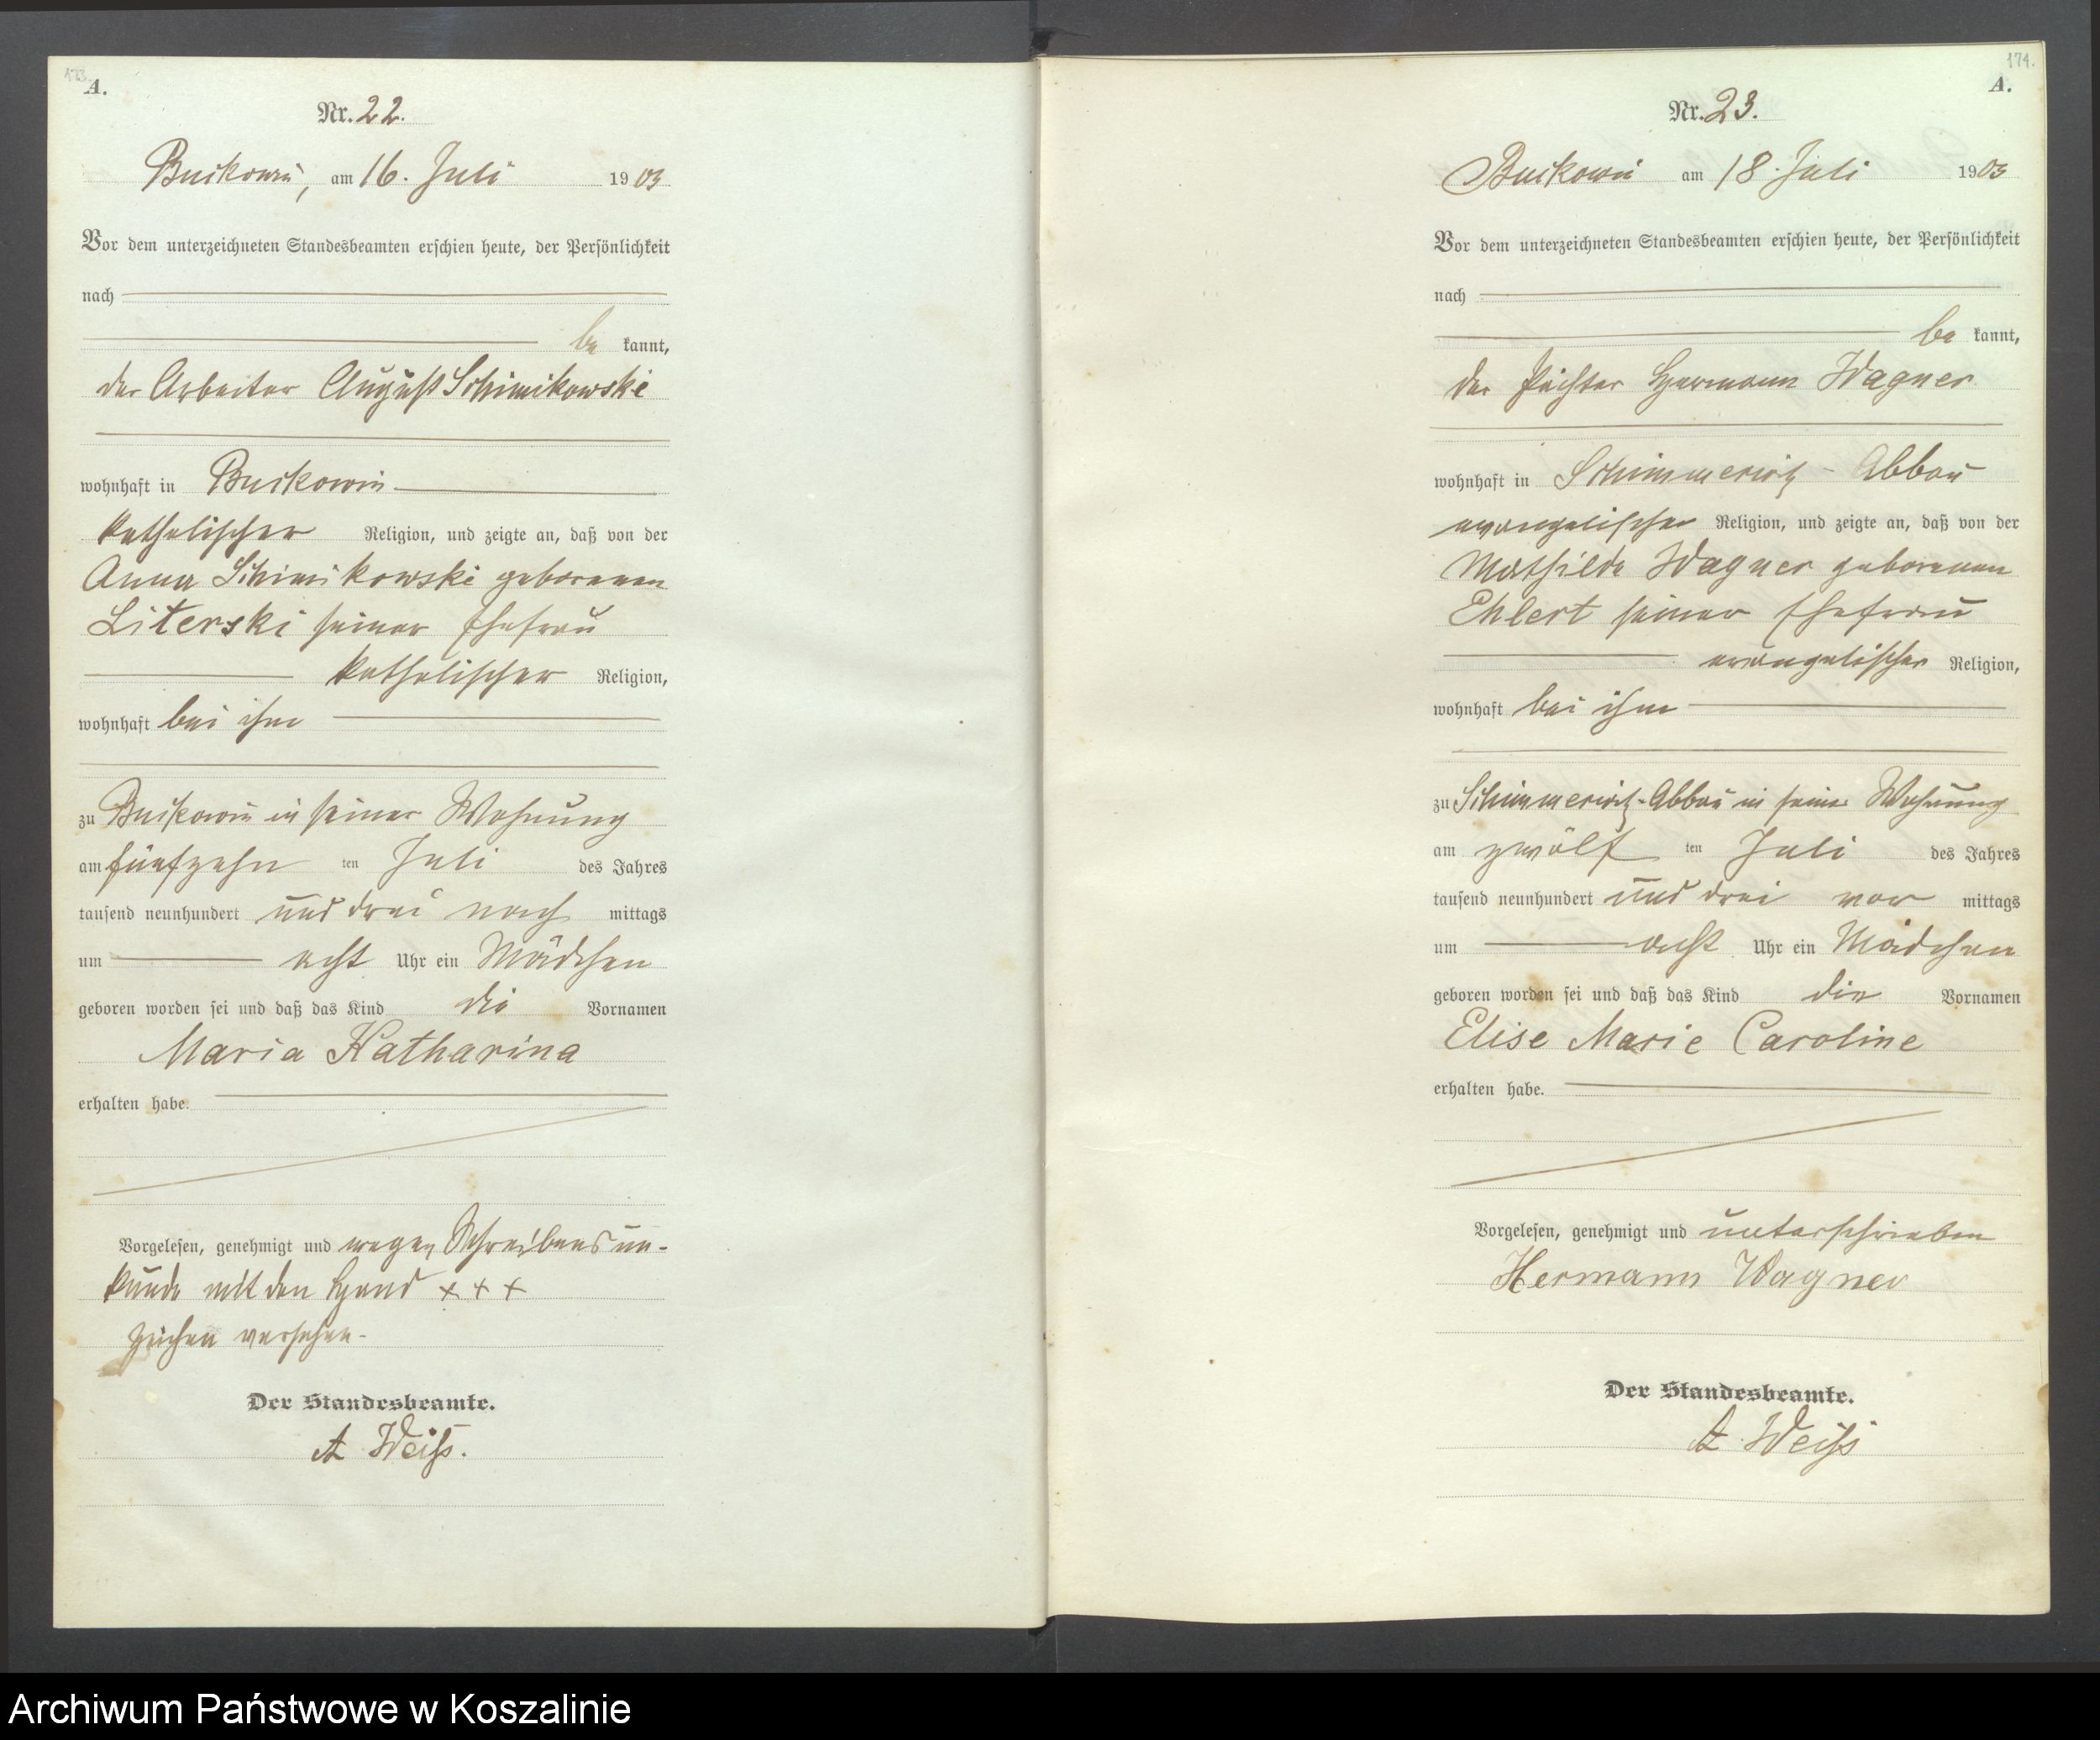 173.
A.
Nr. 22.
Buckowin, am 16. Juli 1903
Vor dem unterzeichneten Standesbeamten erschien heute, der Persönlichkeit
nach
be kannt,
der Arbeiter August Schimikowski
wohnhaft in Buckowin
katholischer Religion, und zeigte an, daß von der
Anna Schimikowski geborenen
Literski seiner Ehefrau
katholischer Religion,
wohnhaft bei ihm
zu Buckowin in seiner Wohnung
am fünfzehn ten Juli des Jahres
tausend neunhundert und drei nach mittags
um acht Uhr ein Mädchen
geboren worden sei und daß das Kind die Vornamen
Maria Katharina
erhalten habe.
Vorgelesen, genehmigt und wegen Schreibens un-
kunde mit den Hand + + +
zeichen versehen-
Der Standesbeamte.
A Weiß.
174.
A.
Nr. 23.
Buckowin am 18. Juli 1903
Vor dem unterzeichneten Standesbeamten erschien heute, der Persönlichkeit
nach
be kannt,
der Pächter Hermann Wagner
wohnhaft in Schimmerwitz - Abbau
evangelischer Religion, und zeigte an, daß von der
Mathilde Wagner geborenen
Ehlert seiner Ehefrau
evangelischer Religion,
wohnhaft bei ihm
zu Schimmerwitz-Abbau in seiner Wohnung
am zwölf ten Juli des Jahres
tausend neunhundert und drei vor mittags
um acht Uhr ein Mädchen
geboren worden sei und daß das Kind die Vornamen
Elise Marie Caroline
erhalten habe.
Vorgelesen, genehmigt und unterschrieben
Hermann Wagner
Der Standesbeamte.
A Weiß
Archiwum Państwowe w Koszalinie